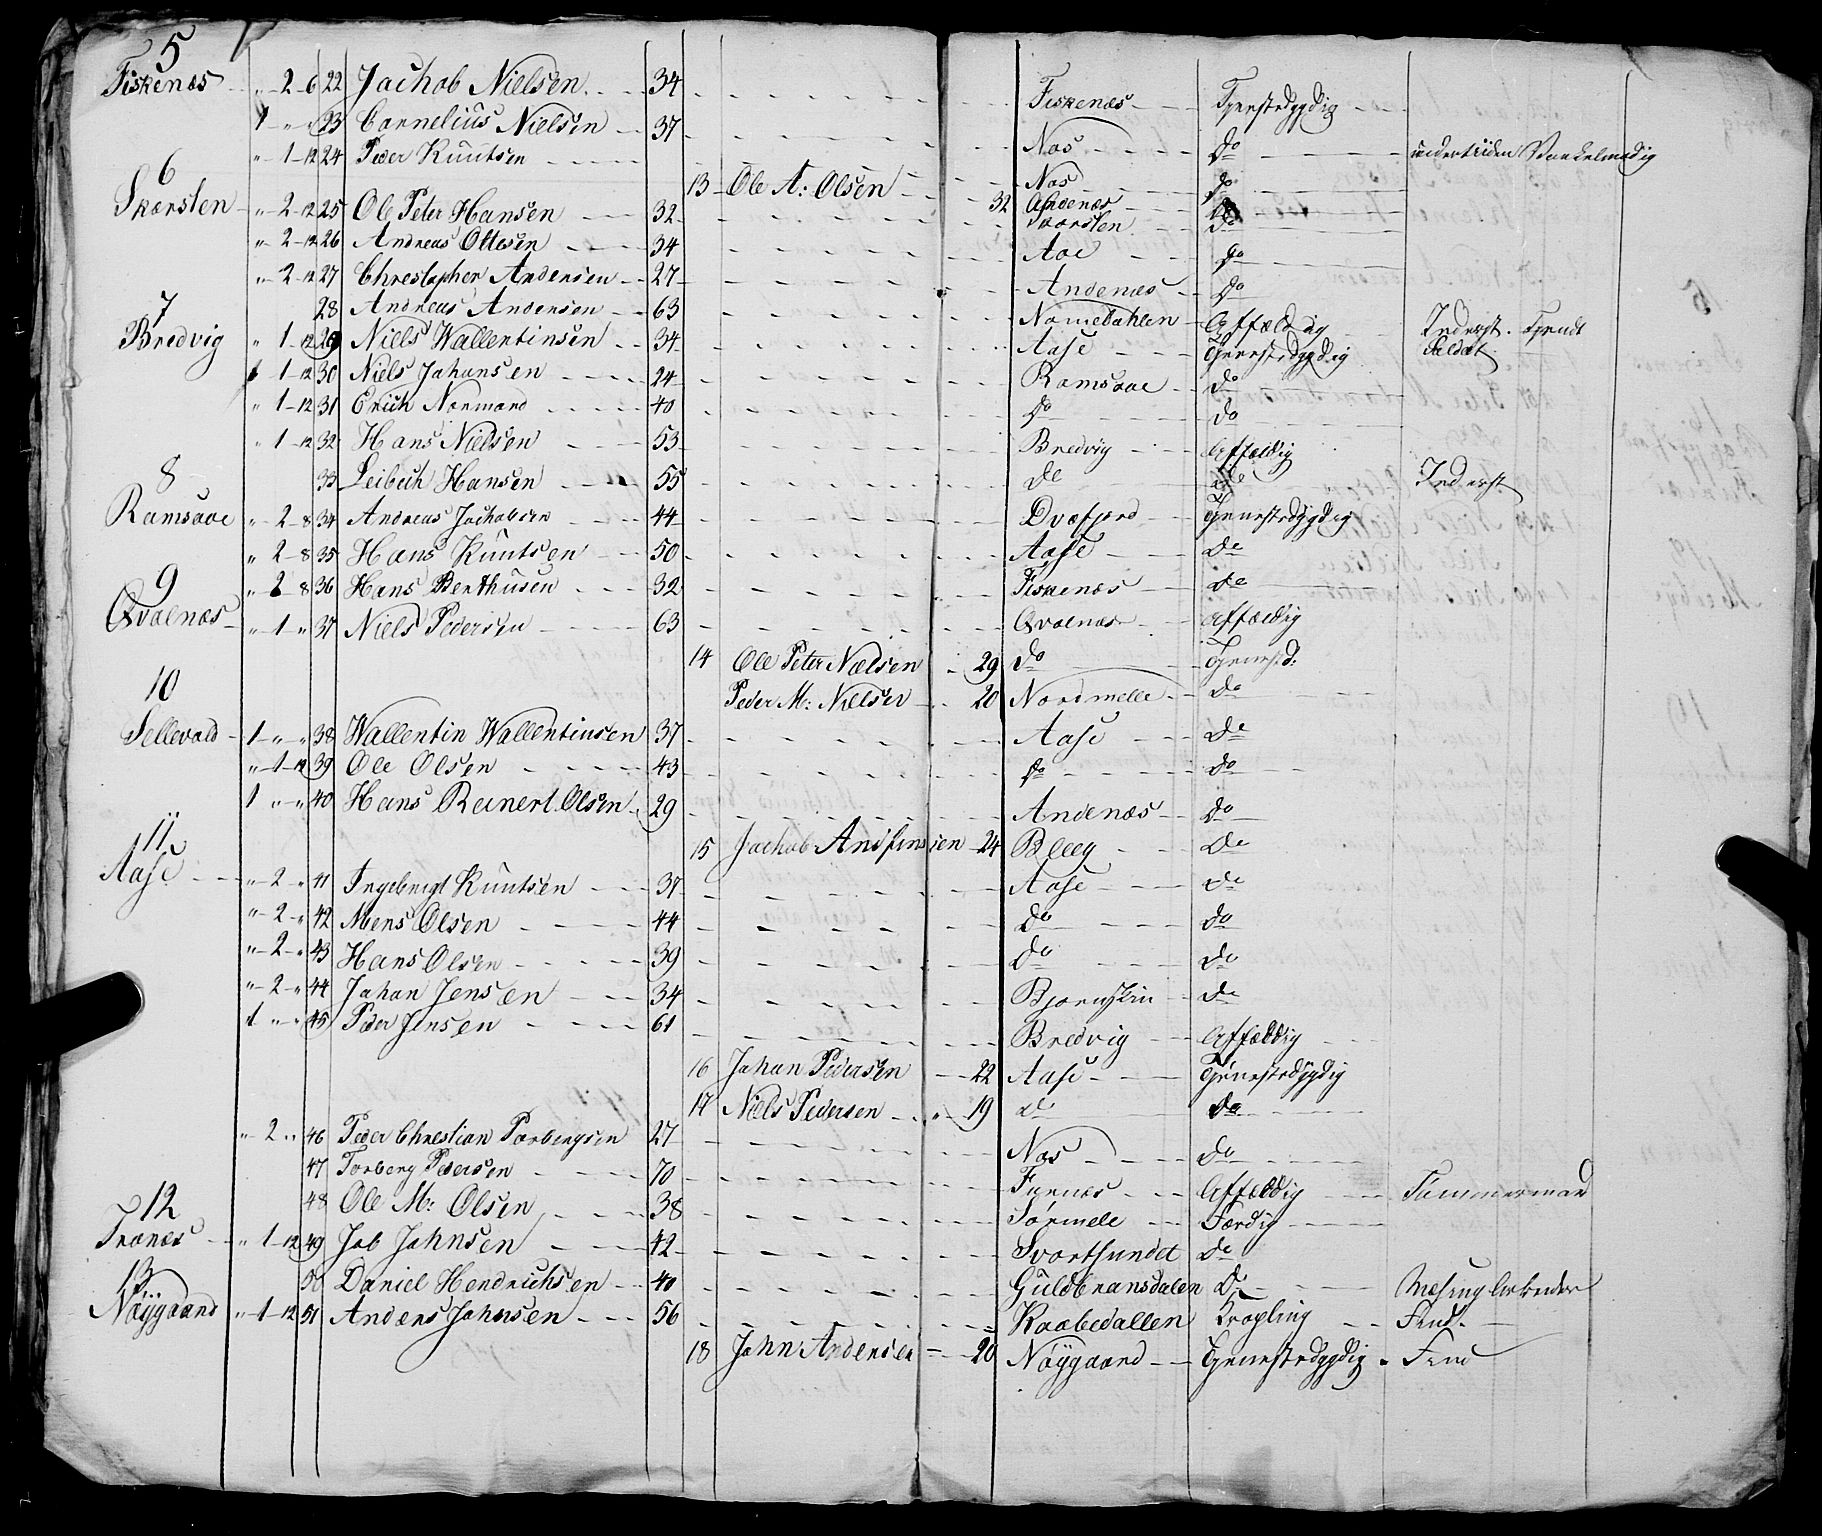 5
Fiskenæs " 2 - 6 22 Jachob Nielsen 34 Fiskenæs Tjenestdygdig
1 " " 23 Cornelius Nielsen 37 Nos do undertiiden Vankelmodig
" 1 - 12 24 Peder Knutsen
6 13 Ole A: Olsen 32 Nos do
Andenæs do
Skarsten " 2 - 12 25 Ole Peter Hansen 32 Skarsten do
" 2 - 12 26 Andreas Ottesen 34 Aae do
" 2 - 12 27 Christopher Andersen 27 Andenæs do
28 Andreas Andersen 63 Affældig Inderst.
7
Bredvig " 1 - 12 29 Niels Wallentinsen 34 Aase Tjenestdygdig Soldat
1 - 12 30 Niels Johansen 24 Ramsaae do
" 1 - 12 31 Erich Normand 40 do do
" 1 - 12 32 Hans Nielsen 53 Bredvig Affældig
8 33 Leibech Hansen 55 do do Inderst
Ramsaae " 2 - 8 34 Andreas Jachobsen 44 Qvæfjord Tjenestdygdig
" 2 - 8 35 Hans Knutsen 50 Aase do
9 " 2 8 36 Hans Benthusen 32 Fiskenæs do
Qvalnæs " 1 " 37 Niels Pedersen 63 Qvalnæs Affældig
14 Ole Peter Nielsen 29 do Tjenestd:
10 Peder M: Nielsen 20 Nordmelle do
Sellevold 1 " " 38 Wallentin Wallentinsen 37 Aase do
" 1 - 12 39 Ole Olsen 43 do do
1 " " 40 Hans Reinert Olsen 29 Andenæs do
11 15 Jachob Andfinsen 24 Bleeg do
Aase " 2 " 41 Ingebrigt Knutsen 37 Aase do
" 2 " 42 Mons Olsen 44 do do
" 2 " 43 Hans Olsen 39 do do
" 2 " 44 Johan Jensen 34 Bjornskin do
1 " " 45 Peder Jensen 61 Bredvig Affældig
16 Johan Pedersen 22 Aase Tjenestdygdig
17 Niels Pedersen 19 do do
" 2 " 46 Peder Christian Torbergsen 27 Nos do
47 Torberg Pedersen 70 Furnæs Affældig Tummermand
12 48 Ole M: Olsen 38 Sørmele Færdig
Tranæs " 1 - 12 49 Job Johnsen 42 Svartsundet do
13 50 Daniel Hendrichsen 40 Guldbransdalen do Mesing Arbeider
Nøygaard " 1 - 12 51 Anders Johnsen 56 Kaabedallen Krøpling Find.
18 John Andersen 20 Nøygaard Tjenestdygdig Find